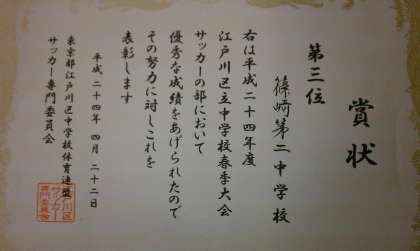 賞状
第三位
篠崎第二中学校
右は平成二十四年度
江戸川区立中学校春季大会
サッカーの部において
優秀な成績をあげられたので
その努力に対しこれを
表彰します
平成二十四年四月二十二日
東京都江戸川区中学校体育連盟
サッカー専門委員会